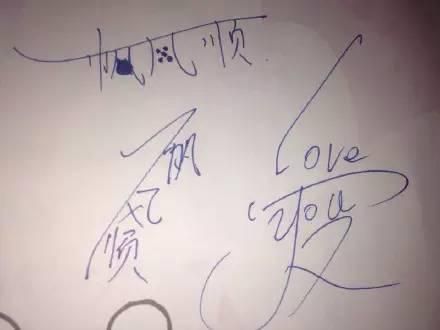 一帆风顺
一帆风顺
Love
you